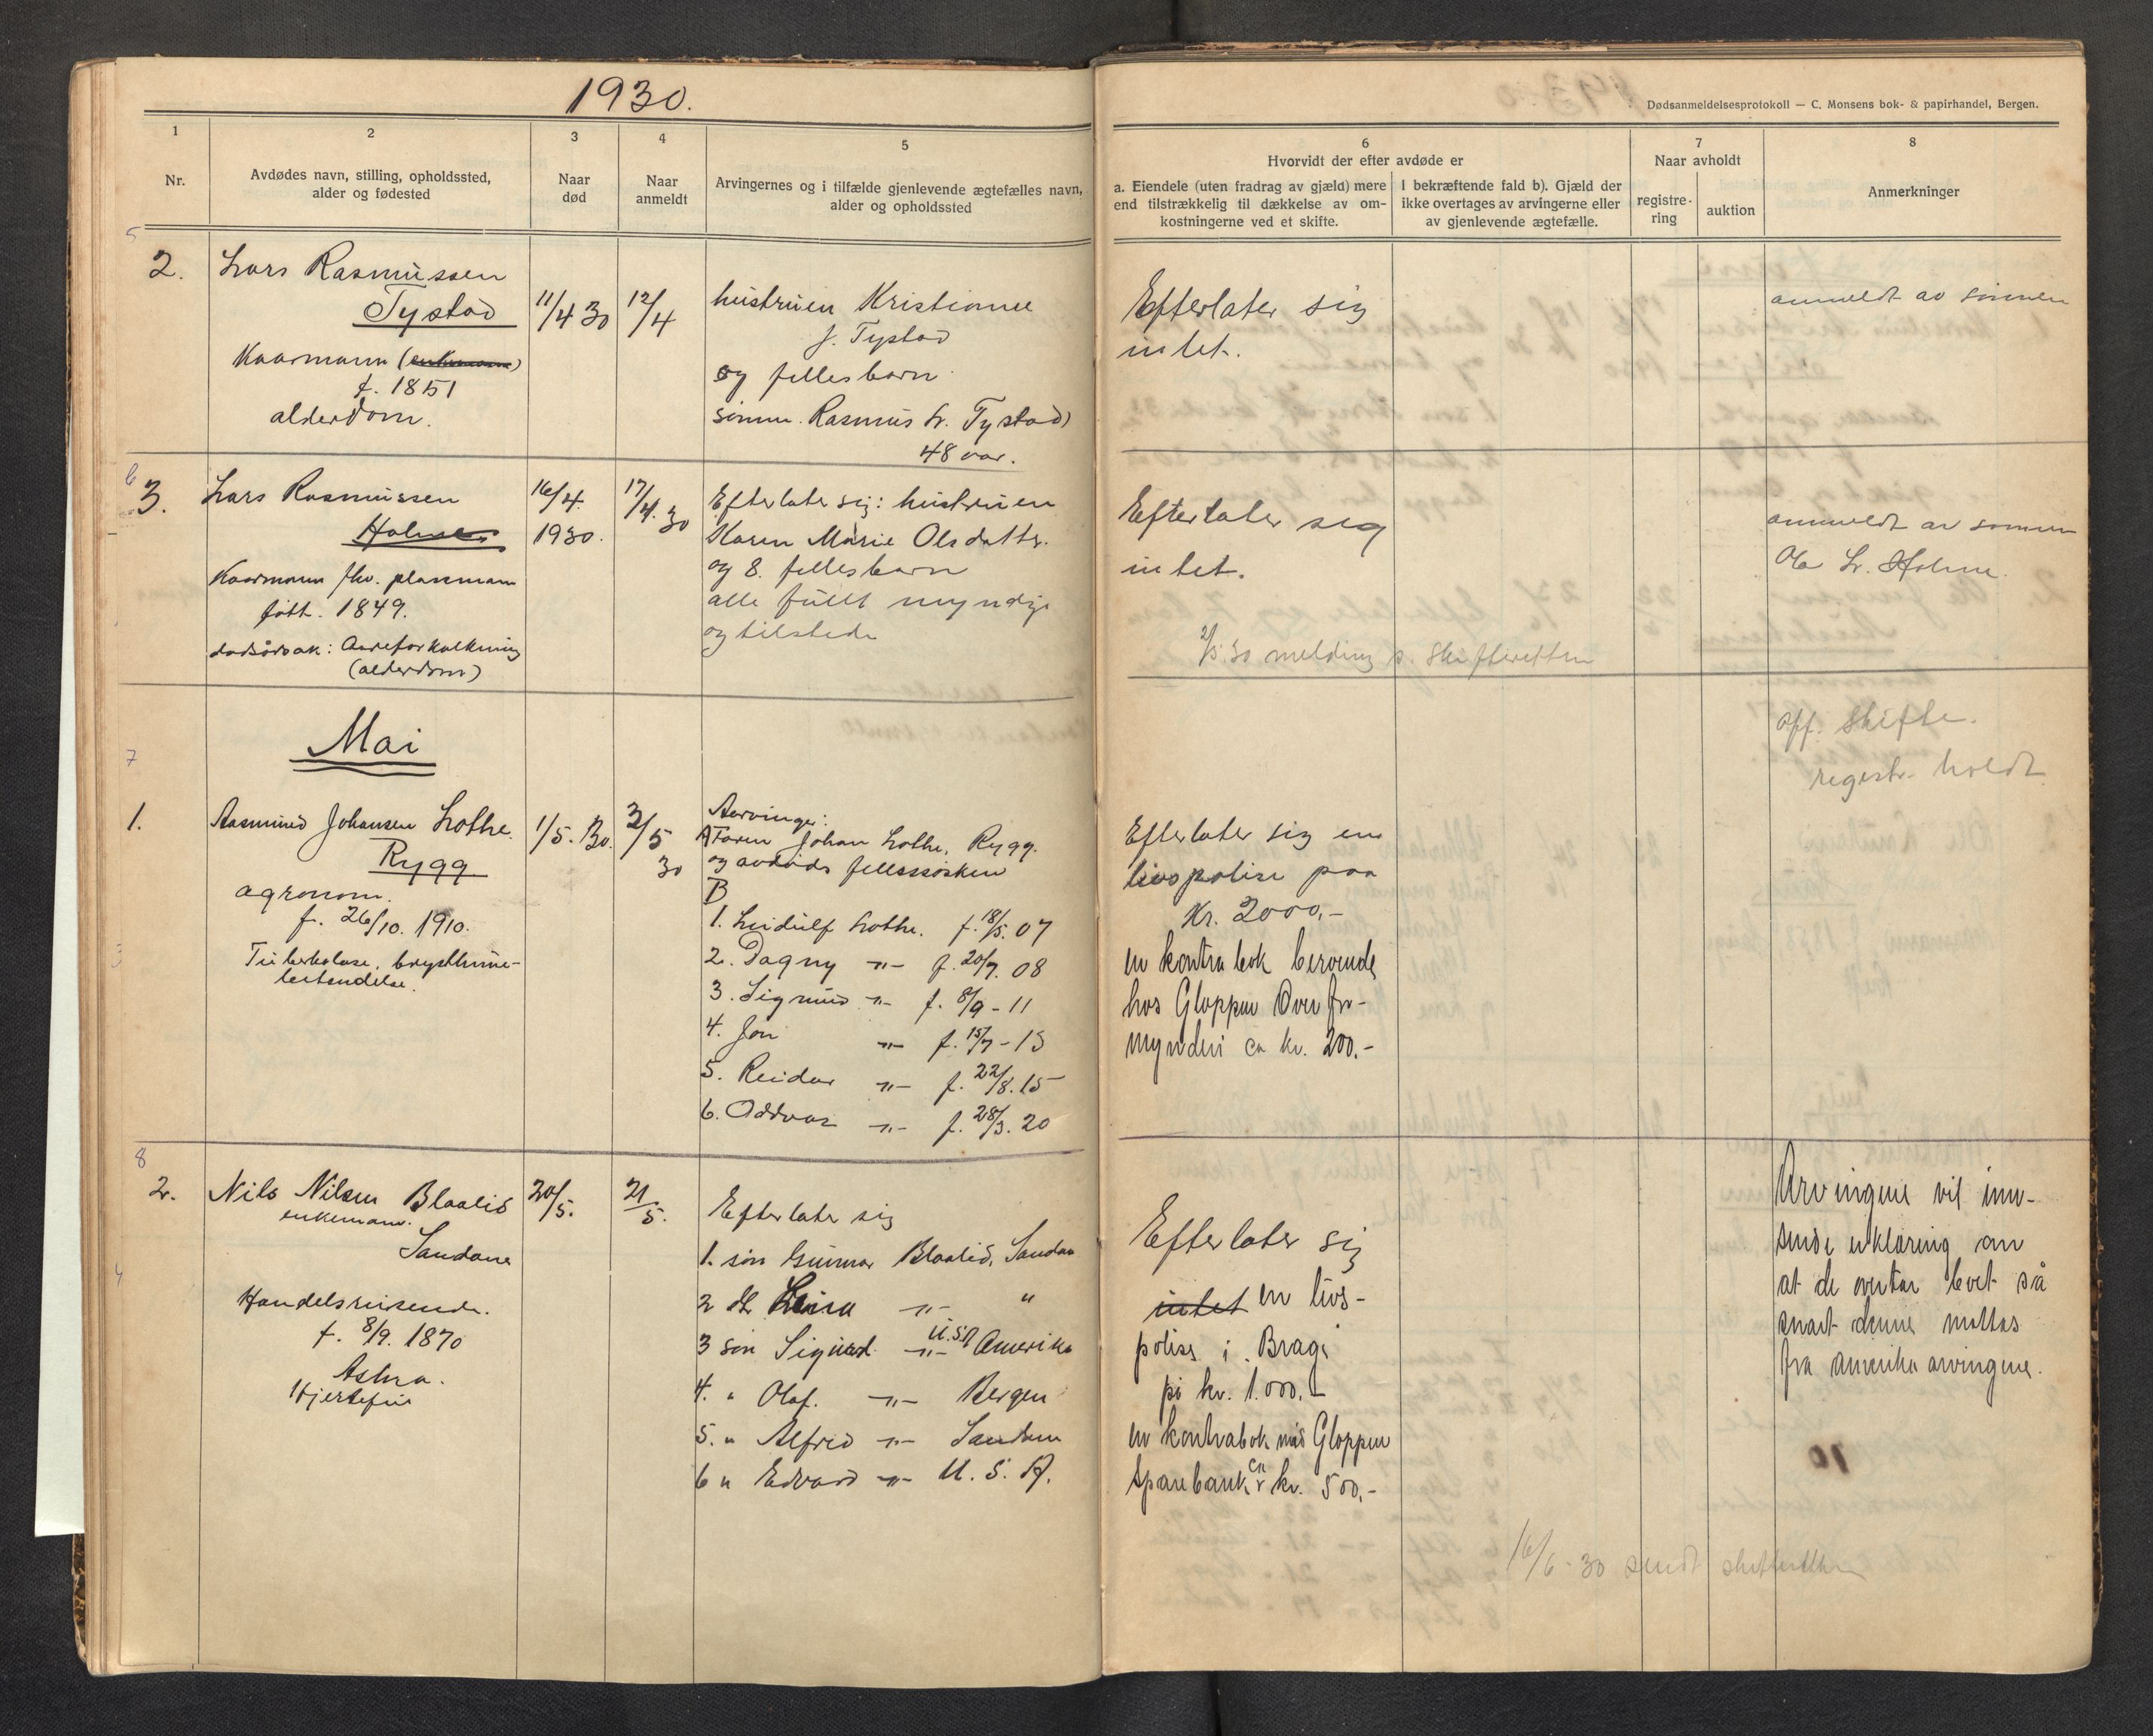 1930.
Dødsanmeldelsesprotokoll — C. Monsens bok- & papirhandel, Bergen.
1
Nr.
2
Avdødes navn, stilling, opholdssted,
alder og fødested
3
Naar
død
4
Naar
anmeldt
5
Arvingernes og i tilfælde gjenlevende ægtefælles navn,
alder og opholdssted
6
Hvorvidt der efter avdøde er
a. Eiendele (uten fradrag av gjæld) mere
end tilstrækkelig til dækkelse av om-
kostningerne ved et skifte.
I bekræftende fald b). Gjæld der
ikke overtages av arvingerne eller
av gjenlevende ægtefælle.
7
Naar avholdt
registre-
ring
auktion
8
Anmerkninger
5
2.
Lars Rasmussen
Tystad
Kaarmann (enkemann)
f. 1851
alderdom.
11/4 30
12/4
hustruen Kristianne
J. Tystad
og fellesbarn
sønnen Rasmus Lr. Tystad
48 aar.
Efterlater sig
intet.
anmeldt av sønnen
6
3.
Lars Rasmussen
Holme
Kaarmann fhv. plassmann
født. 1849.
dødsårsak: Aareforkalkning
(alderdom)
16/4.
1930.
17/4. 30
Efterlater sig: hustruen
Karen Marie Olsdatter.
og 8. fellesbarn
alle fullt myndige
og tilstede
Efterlater sig
intet.
2/5.30 melding s. skifteretten
anmeldt av sønnen
Ola Lr. Holme.
Mai
7
1.
Aasmund Johansen Lothe.
Rygg
agronom.
f. 26/10. 1910.
Tuberkulose, brysthinne-
betendelse.
1/5. 30.
3/5
30
Arvinger:
A Faren Johan Lothe, Rygg.
og avdøds fellessøsken
B
1. Leidulf Lothe. f. 18/5. 07
2. Dagny -"- f. 20/7. 08
3. Sigmund -"- f. 8/9 - 11
4. Jon -"- f. 15/7 - 13
5. Reidar -"- f. 22/8. 15
6. Oddvar -"- f. 28/3. 20
Efterlater sig en
livspolise paa
Kr. 2000,-
en kontrabok beroende
hos Gloppen Overfor-
mynderi ca kr. 200.-
off. skifte.
registr. holdt
8
2.
Nils Nilsen Blaalid
enkemann.
Sandane
Handelsreisende.
f. 8/9. 1870
Astma.
Hjertefeil
20/5.
21/5.
Efterlater sig
1. søn Gunnar Blaalid, Sandane
2 dt. -"- "
3 søn Sigurd -"- U.S.A Amerika
4. " Olaf. -"- Bergen
5. " Alfred -"- Sandane
6 " Edvard -"- U. S. A.
Efterlater sig
intet en livs-
polise i Brage
på kr. 1.000.-
en kontrabok med Gloppen
Sparebank ca kr. 500,-
Arvingene vil inn-
sende erklæring om
at de overtar boet så
snart denne mottas
fra amerika arvingene.
10
16/6-30 sendt skifteretten